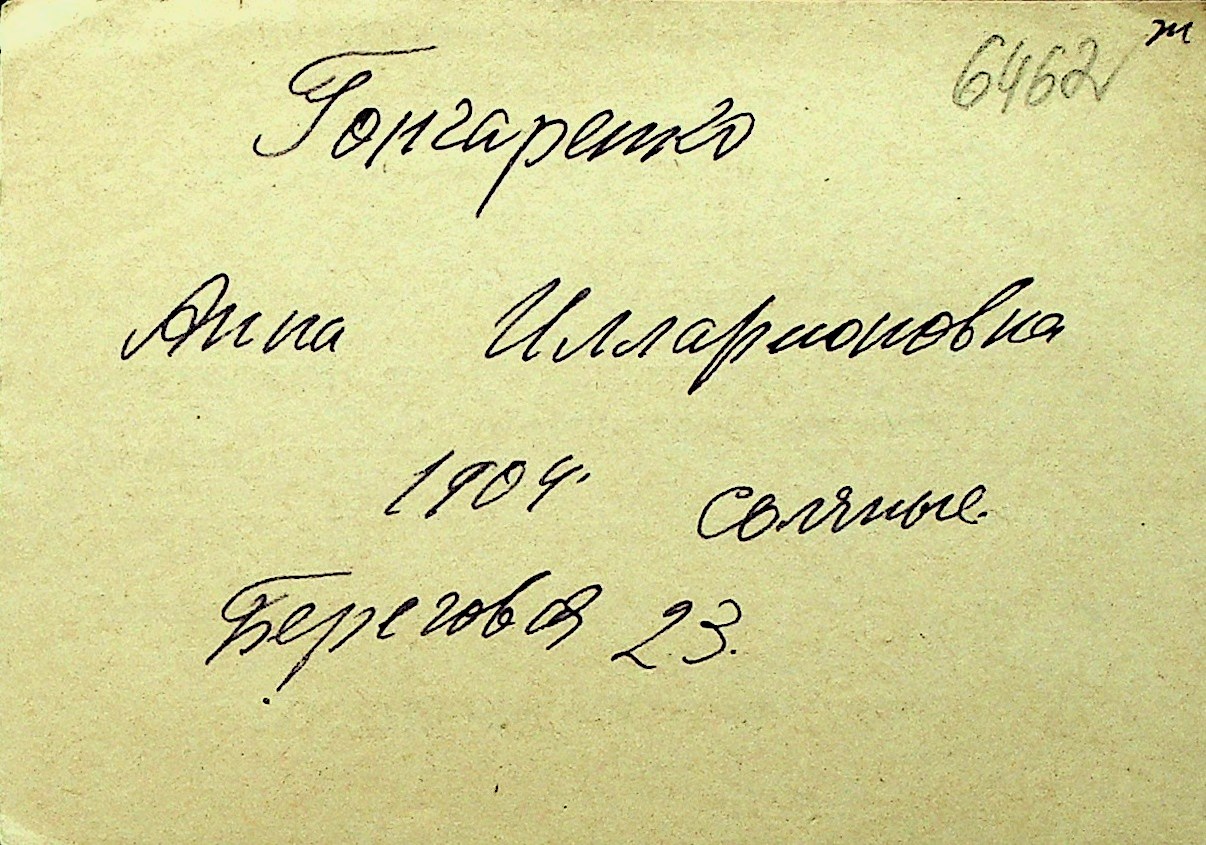 ж
6462
Гончаренко
Анна Илларионовна
1904. Соляные.
Береговая 23.